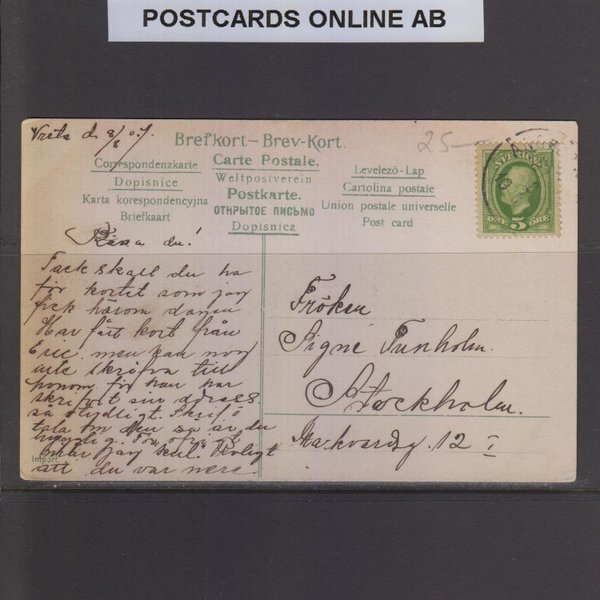 POSTCARDS ONLINE AB
Vreta d. 8/8 07.
25-
Brefkort — Brev-Kort.
Correspondenzkarte
Carte Postale.
Levelező-Lap
Dopisnice
Weltpostverein
Cartolina postale
Karta korespondencyjna
Postkarte.
Union postale universelle
Briefkaart
ОТКРЫТОЕ ПИСЬМО
Post card
Dopisnica
SVERIGE
5
ÖRE
Kära du!
Tack skall du ha
för kortet som jag
fick härom dagen
Har fått kort från
Eric. men kan nog
inte skrifva till
honom för han har
skrifvit sin adress
så otydligt. Skrif o
tala om den så är du
jag
att du var mere.
Import.
Fröken
Signe Tunholm.
Stockholm.
12 I